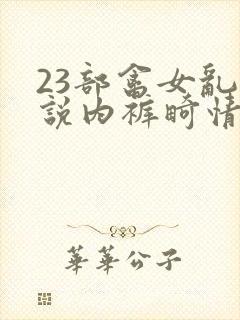 23部畲女亂
説内裤畸情
華華公子